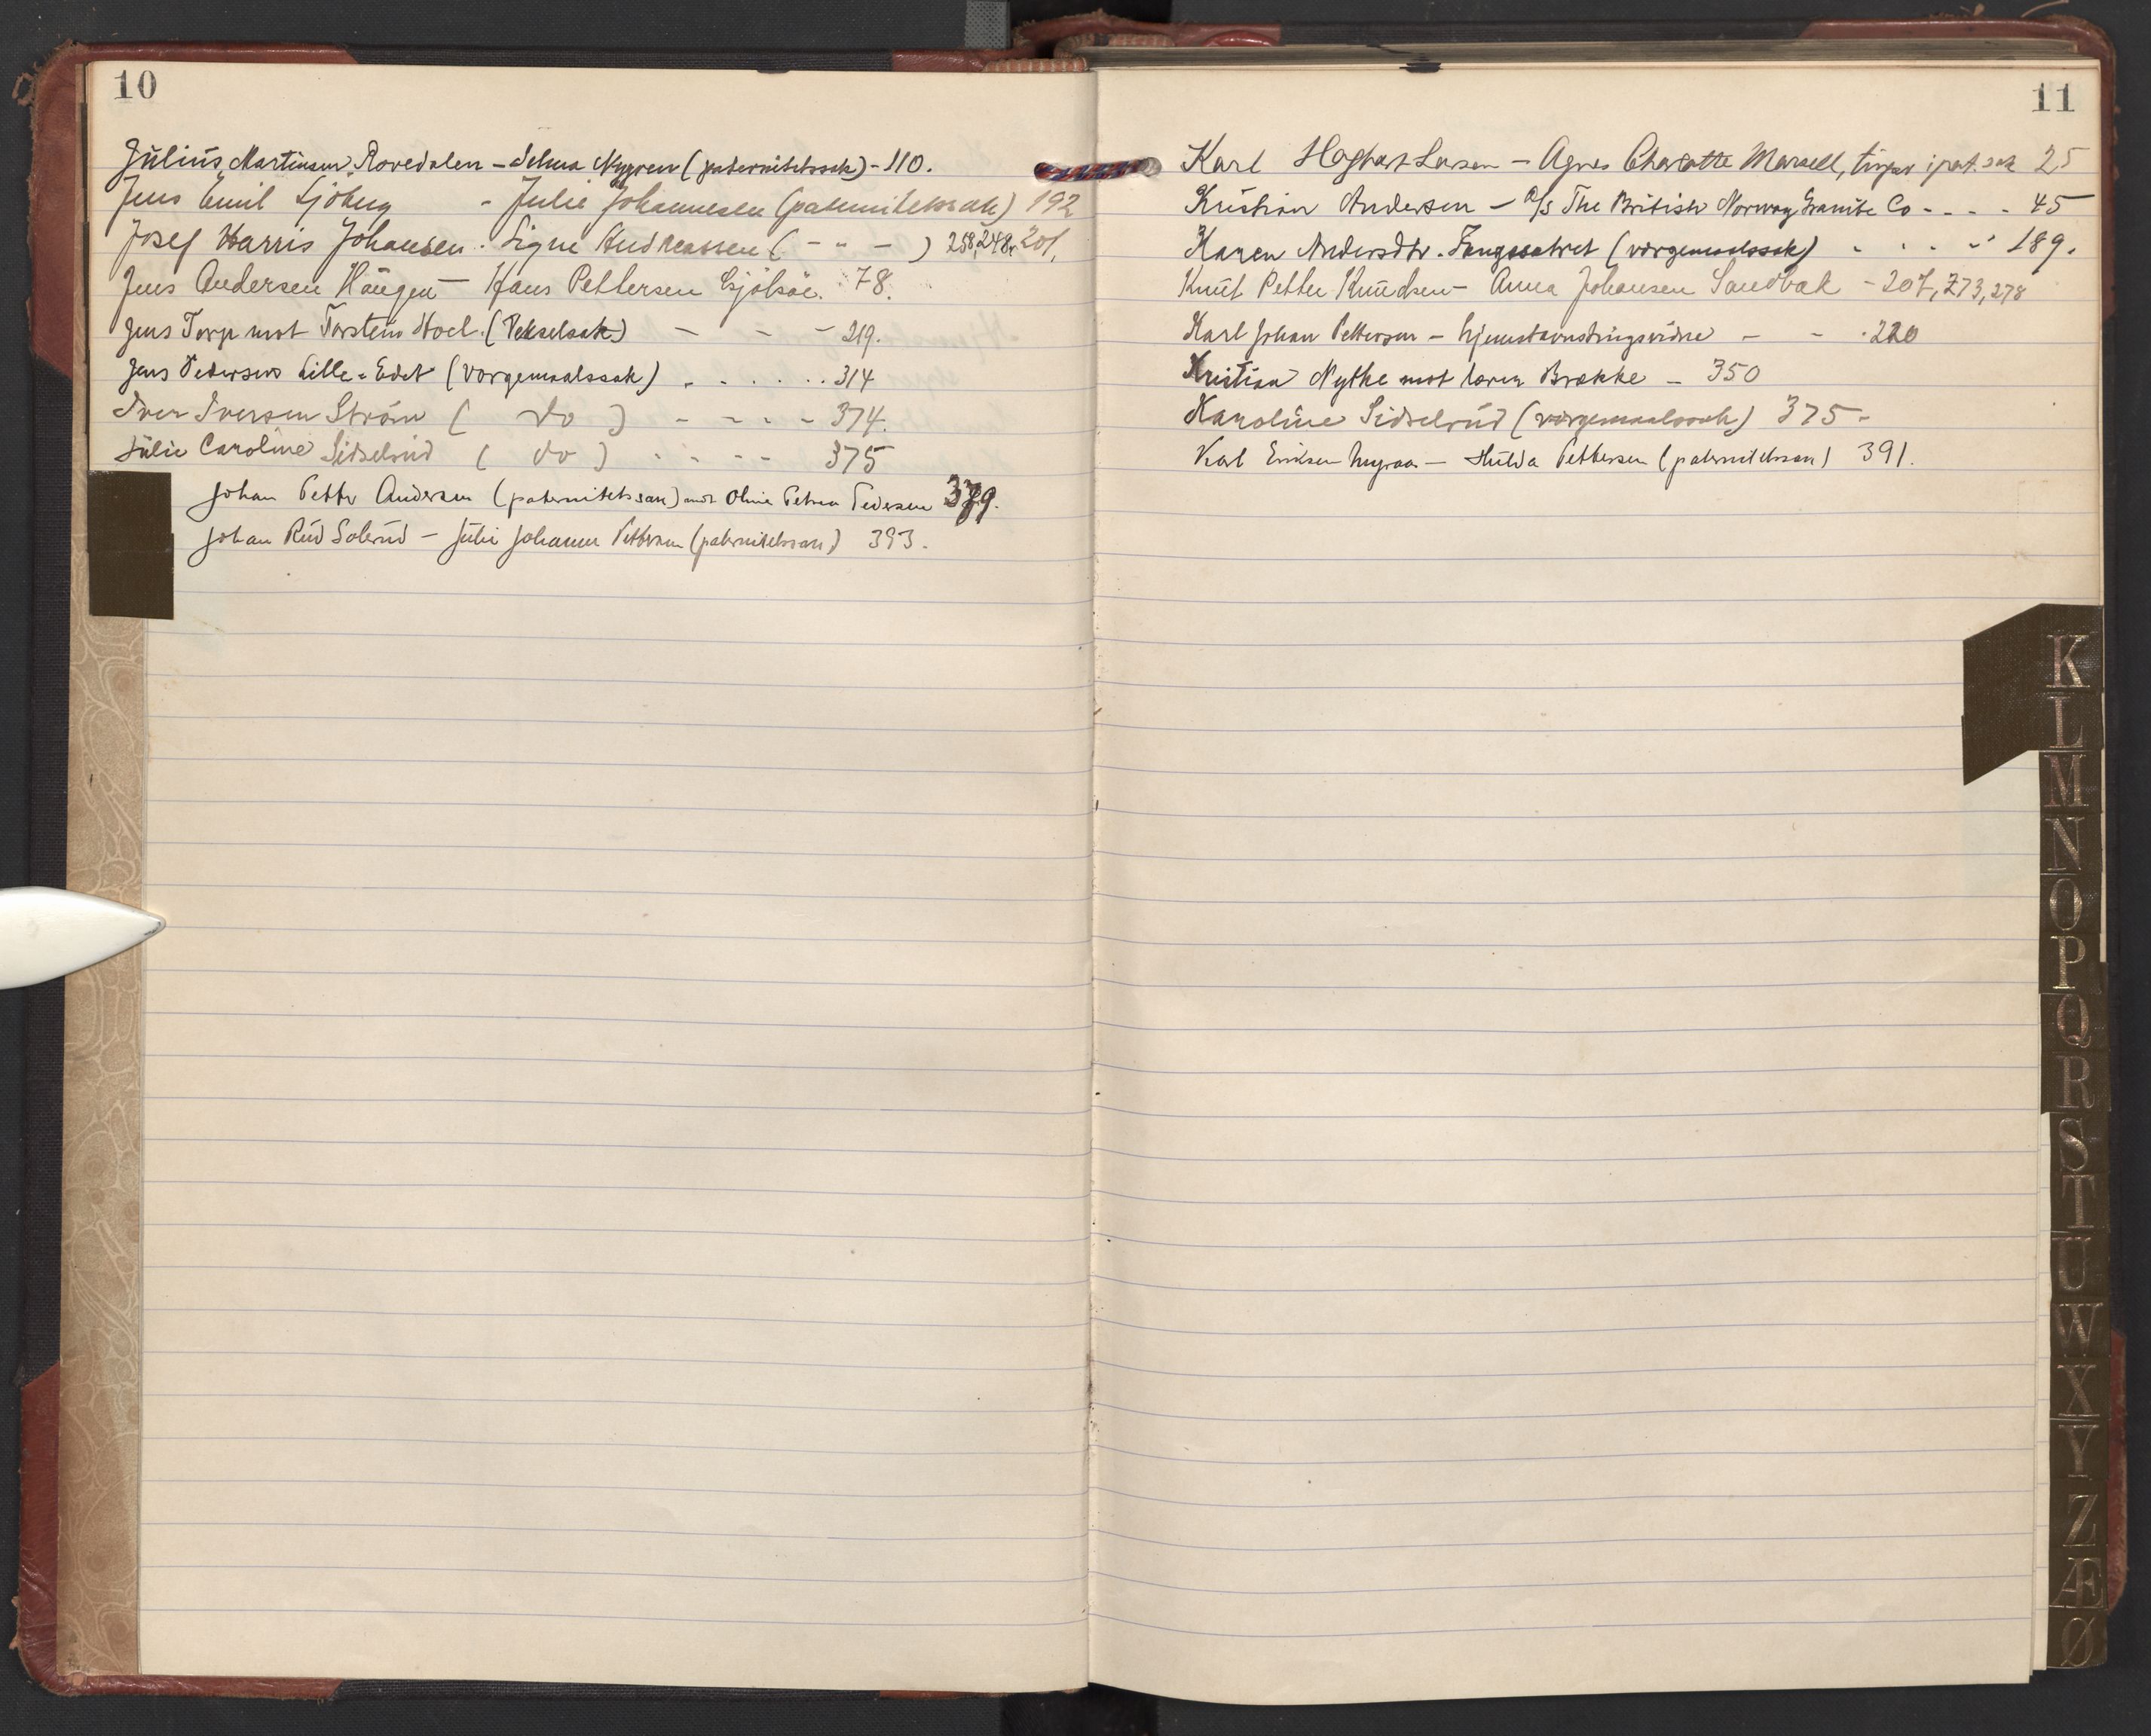 10
Julius Martinsen Rovedalen - Selma Nygren (paternitetssak) - 110.
Jens Emil Sjöberg - Julie Johannesen (paternitetssak) 192
Josef Harris Johansen - Signe Andreassen ( - " - ) 258, 248, 201,
Jens Andersen Haugen - Hans Pettersen 78.
Jens Torp mot Torstein Hoel. (Vekselsak) - - - 219.
Jens Pedersens Lille-Edet (vorgemaalssak) . . . . . . 314
Iver Iversen Ström ( do ) - - - - 374.
Julie Caroline Sidselrud ( do ) . . - - - 375
Johan Petter Andersen (paternitetssak) mot Oline Petrea Pedersen 379.
Johan Rud Solerud - Julie Johanne Pettersen (paternitetssak) 393.
11
Karl Hagbart Larsen - Agnes Charlotte Marsell, i pat. sak 25
Kristian Andersen - A/S The British Norway Granite Co - - - - 45
Karen Andersdtr. (vorgemaalssak) - . . - 189.
Knut Petter Knudsen - Anna Johansen Sandbak - 207, 273, 278
Karl Johan Pettersen - - - . 220
Kristian Nythe mot Brække - 350
Karoline Sidselrud (vorgemaalssak) 375 -
Karl Eriksen Myraa - Hulda Pettersen (paternitetssak) 391.
K
L
M
N
O
P
Q
R
S
T
U
W
X
Y
Z
Æ
Ø